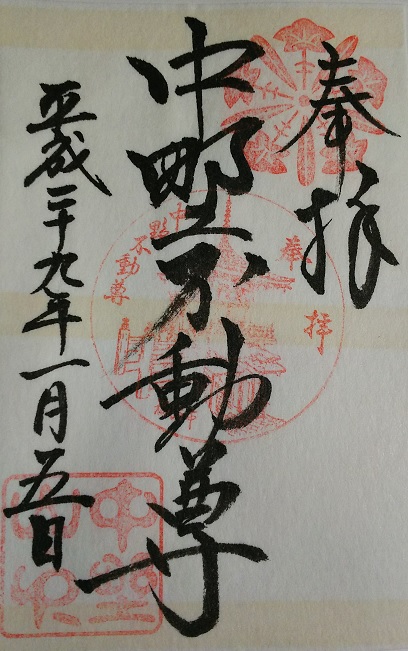 奉拝
中野不動尊
平成二十九年一月五日
奉拝
中野不動尊